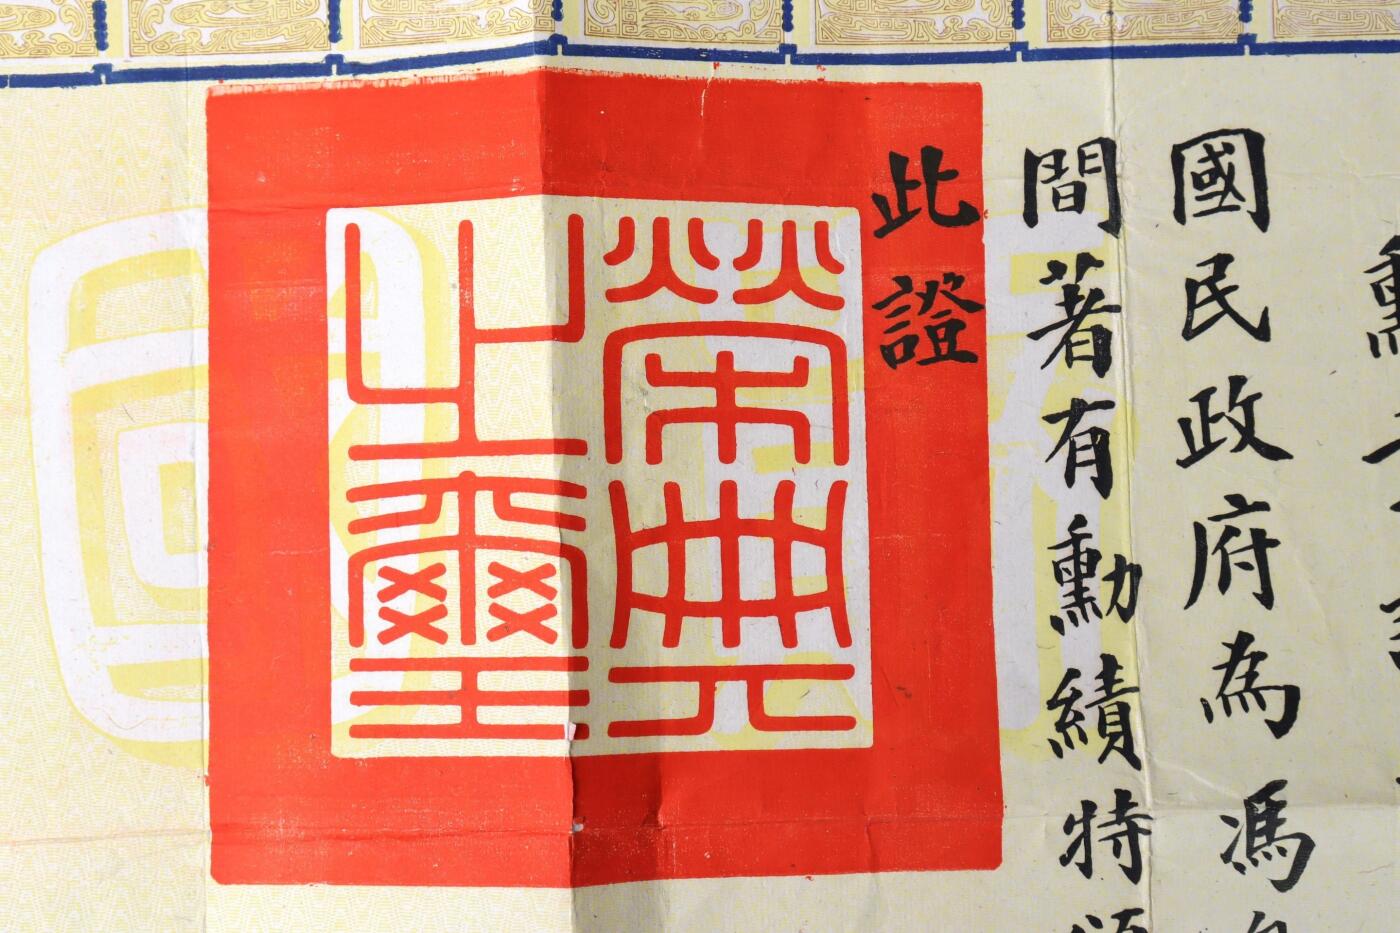 國民政府為馮
間著有勳績特頒
此證
榮典
之璽